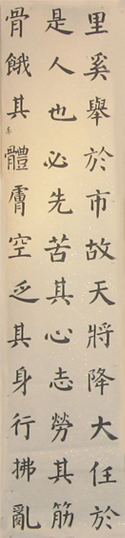 里奚舉於市故天將降大任於
是人也必先苦其心志勞其筋
骨餓其體膚空乏其身行拂亂